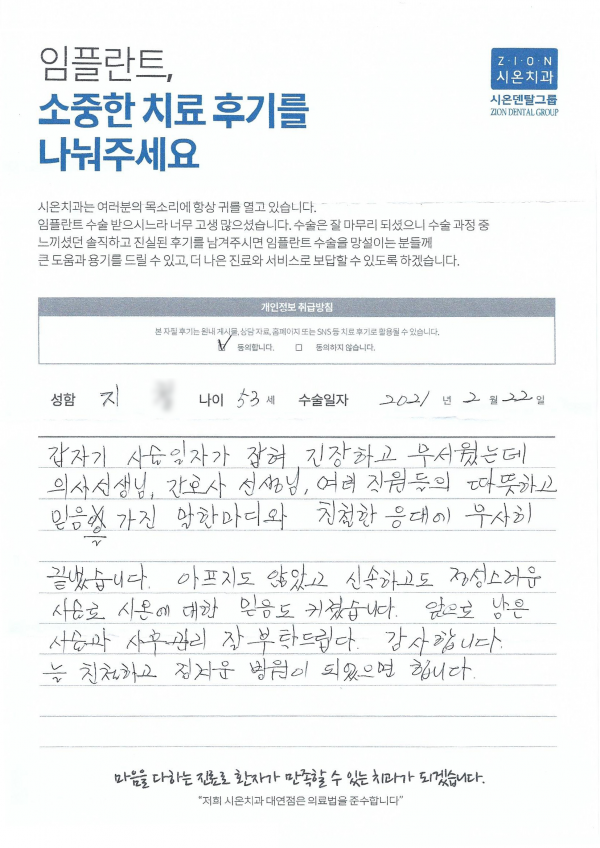 임플란트,
소중한 치료 후기를
나눠주세요
Z·I·O·N
시온치과
시온덴탈그룹
ZION DENTAL GROUP
시온치과는 여러분의 목소리에 항상 귀를 열고 있습니다.
임플란트 수술 받으시느라 너무 고생 많으셨습니다. 수술은 잘 마무리 되셨으니 수술 과정 중
느끼셨던 솔직하고 진실된 후기를 남겨주시면 임플란트 수술을 망설이는 분들께
큰 도움과 용기를 드릴 수 있고, 더 나은 진료와 서비스로 보답할 수 있도록 하겠습니다.
개인정보 취급방침
본 자필 후기는 원내 게시물, 상담 자료, 홈페이지 또는 SNS 등 치료 후기로 활용될 수 있습니다.
동의합니다. 동의하지 않습니다.
성함 지 나이 53 세 수술일자 2021 년 2 월 22 일
갑자기 사술일자가 잡혀 긴장하고 무서웠는데
의사선생님, 간호사 선생님, 여러 직원들의 따뜻하고
믿음을 가진 말한마디와 친절한 응대에 무사히
끝냈습니다. 아프지도 않았고 신속하고도 정성스러운
사술로 시온에 대한 믿음도 커졌습니다. 앞으로 남은
사술과 사후관리 잘 부탁드립다. 감사합니다.
늘 친절하고 정지운 병원이 되었으면 합니다.
마음을 다하는 진료로 환자가 만족할 수 있는 치과가 되겠습니다.
“저희 시온치과 대연점은 의료법을 준수합니다”